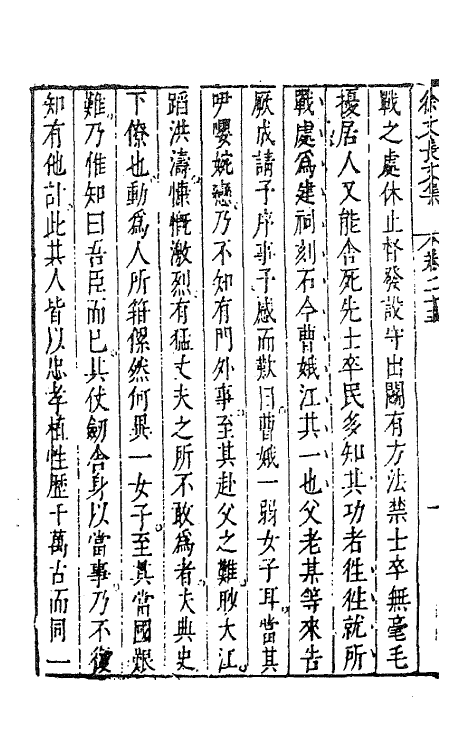 徐文長文集 卷二十三 一
戰之處休止督發設守出闘有方法禁士卒無毫毛
擾居人又能舎死先士卒民多知其功者徃徃就所
戰處爲建祠刻石今曹娥江其一也父老某等來告
厥成請予序事予感而歎曰曹娥一弱女子耳當其
咿嚶婉戀乃不知有門外事至其赴父之難眇大江
蹈洪濤慷慨激烈有猛丈夫之所不敢爲者夫典史
下僚也動爲人所箝傫然何異一女子至其當國艱
難乃惟知曰吾臣而已其仗劒舍身以當事乃不復
知有他計此其人皆以忠孝植性歷千萬古而同一